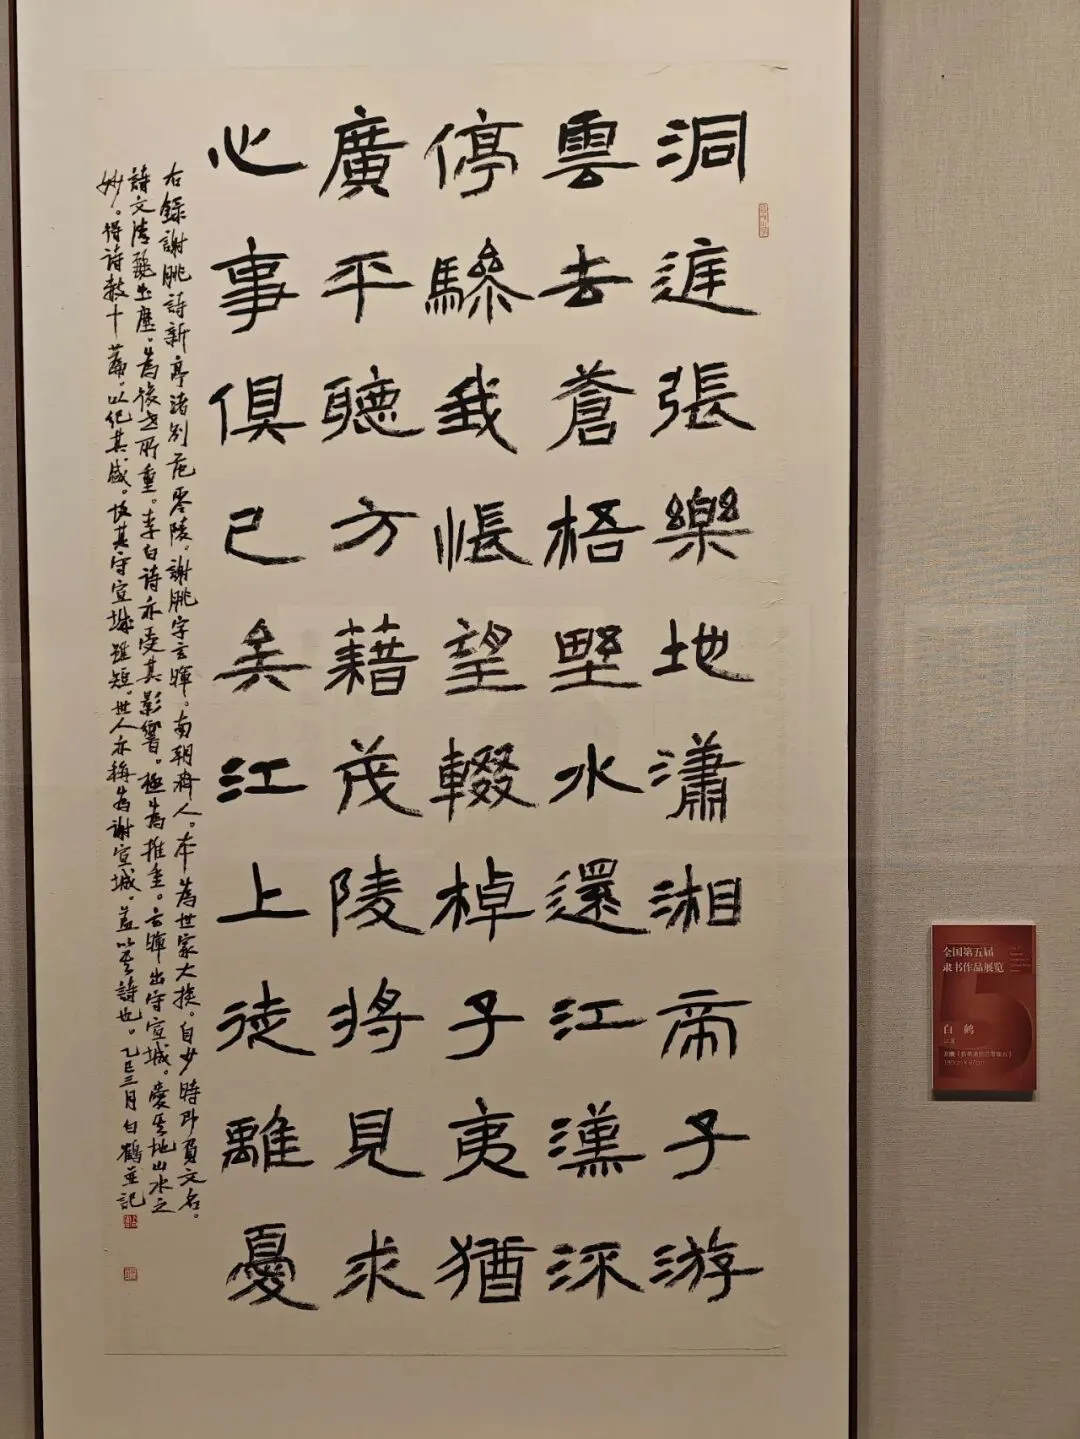 洞庭張樂地瀟湘帝子游
雲去蒼梧野水還江漢流
停驂我悵望輟棹子夷猶
廣平聽方藉茂陵將見求
心事俱已矣江上徒離憂
右錄謝朓詩新亭渚別范零陵。謝朓字玄暉。南朝齊人。本為世家大族。自少時即負文名。
詩文清麗出塵。為後世所重。李白詩亦受其影響。極為推重。玄暉出守宣城。愛其地山水之
妙。得詩數十篇。以紀其盛。故其守宣城雖短。世人亦稱為謝宣城。蓋以其詩也。乙巳三月白鶴並記
全国第五届
隶书作品展览
白 鹤